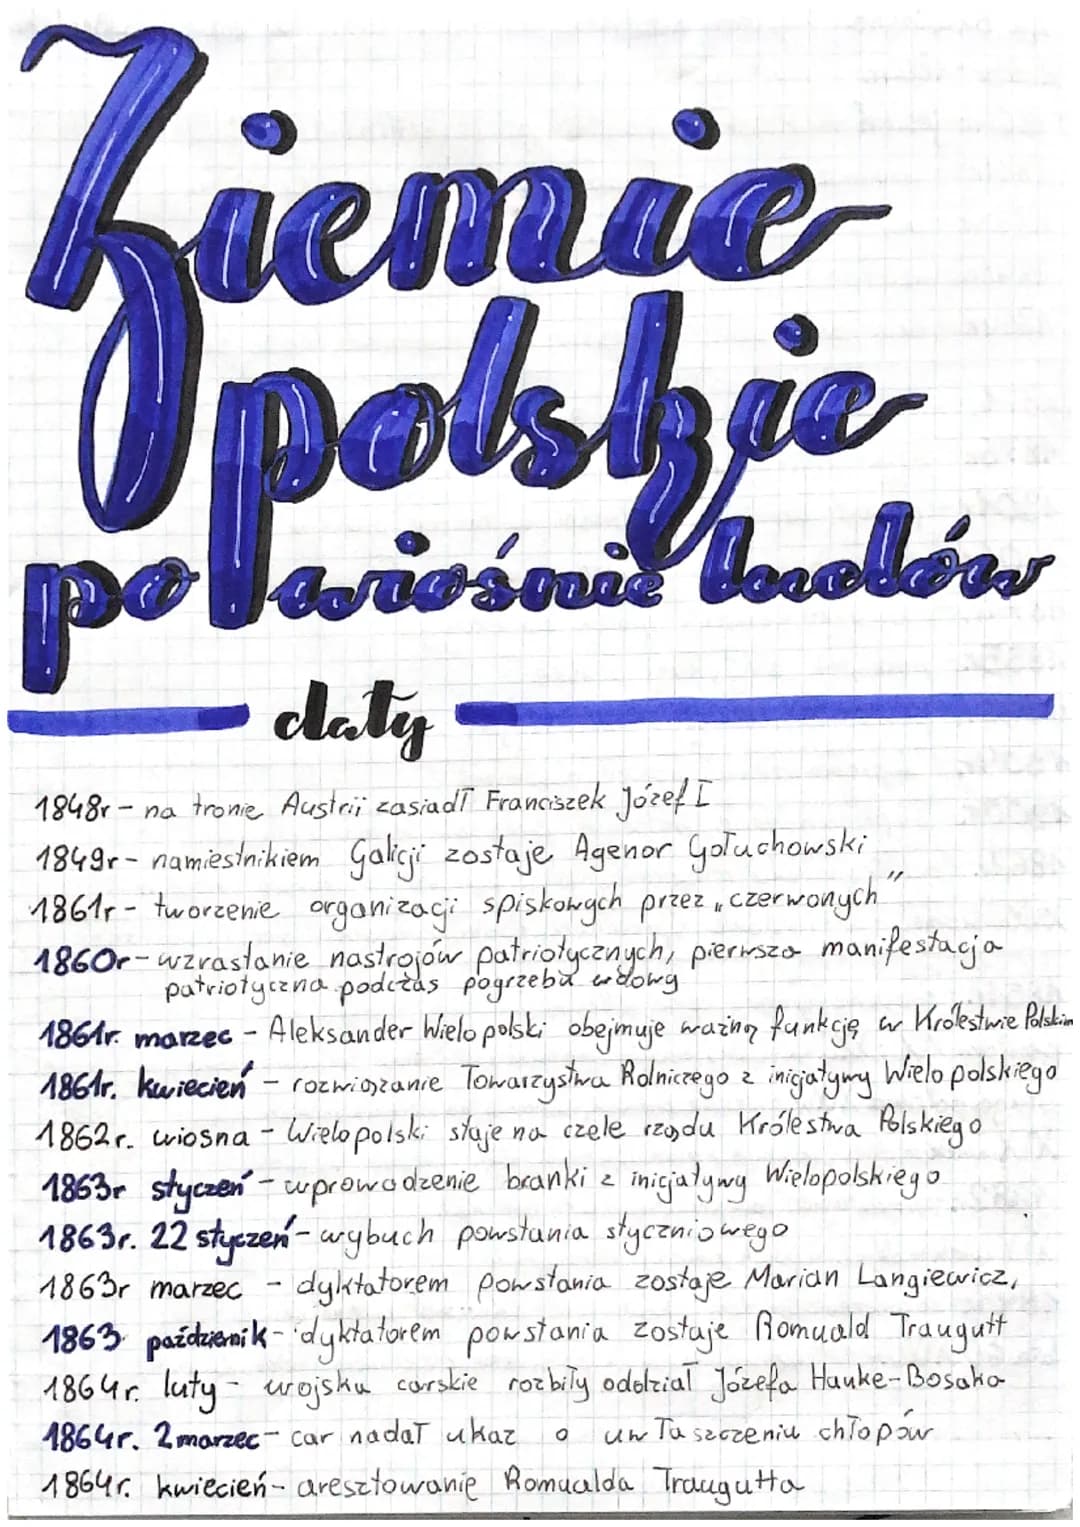 Ziemie
polskie
po wiośnie ludów
daty
1848r - na tronie Austrii zasiadł Franciszek Józef I
1849r - namiestnikiem Galicji zostaje Agenor Gołuchowski
1861r - tworzenie organizacji spiskowych przez „czerwonych"
1860r - wzrastanie nastrojów patriotycznych, pierwsza manifestacja
patriotyczna podczas pogrzebu wdowy
1861r. marzec - Aleksander Wielopolski obejmuje ważną funkcję w Królestwie Polskim
1861r. kwiecień - rozwiązanie Towarzystwa Rolniczego z inicjatywy Wielopolskiego
1862r. wiosna - Wielopolski staje na czele rządu Królestwa Polskiego
1863r styczeń - wprowadzenie branki z inicjatywy Wielopolskiego
1863r. 22 styczeń - wybuch powstania styczniowego
1863r marzec - dyktatorem powstania zostaje Marian Langiewicz,
1863 październik - dyktatorem powstania zostaje Romuald Traugutt
1864r. luty - wojska carskie rozbiły oddział Józefa Hauke-Bosaka
1864r. 2 marzec - car nadał ukaz o uwłaszczeniu chłopów
1864r. kwiecień - aresztowanie Romualda Traugutta